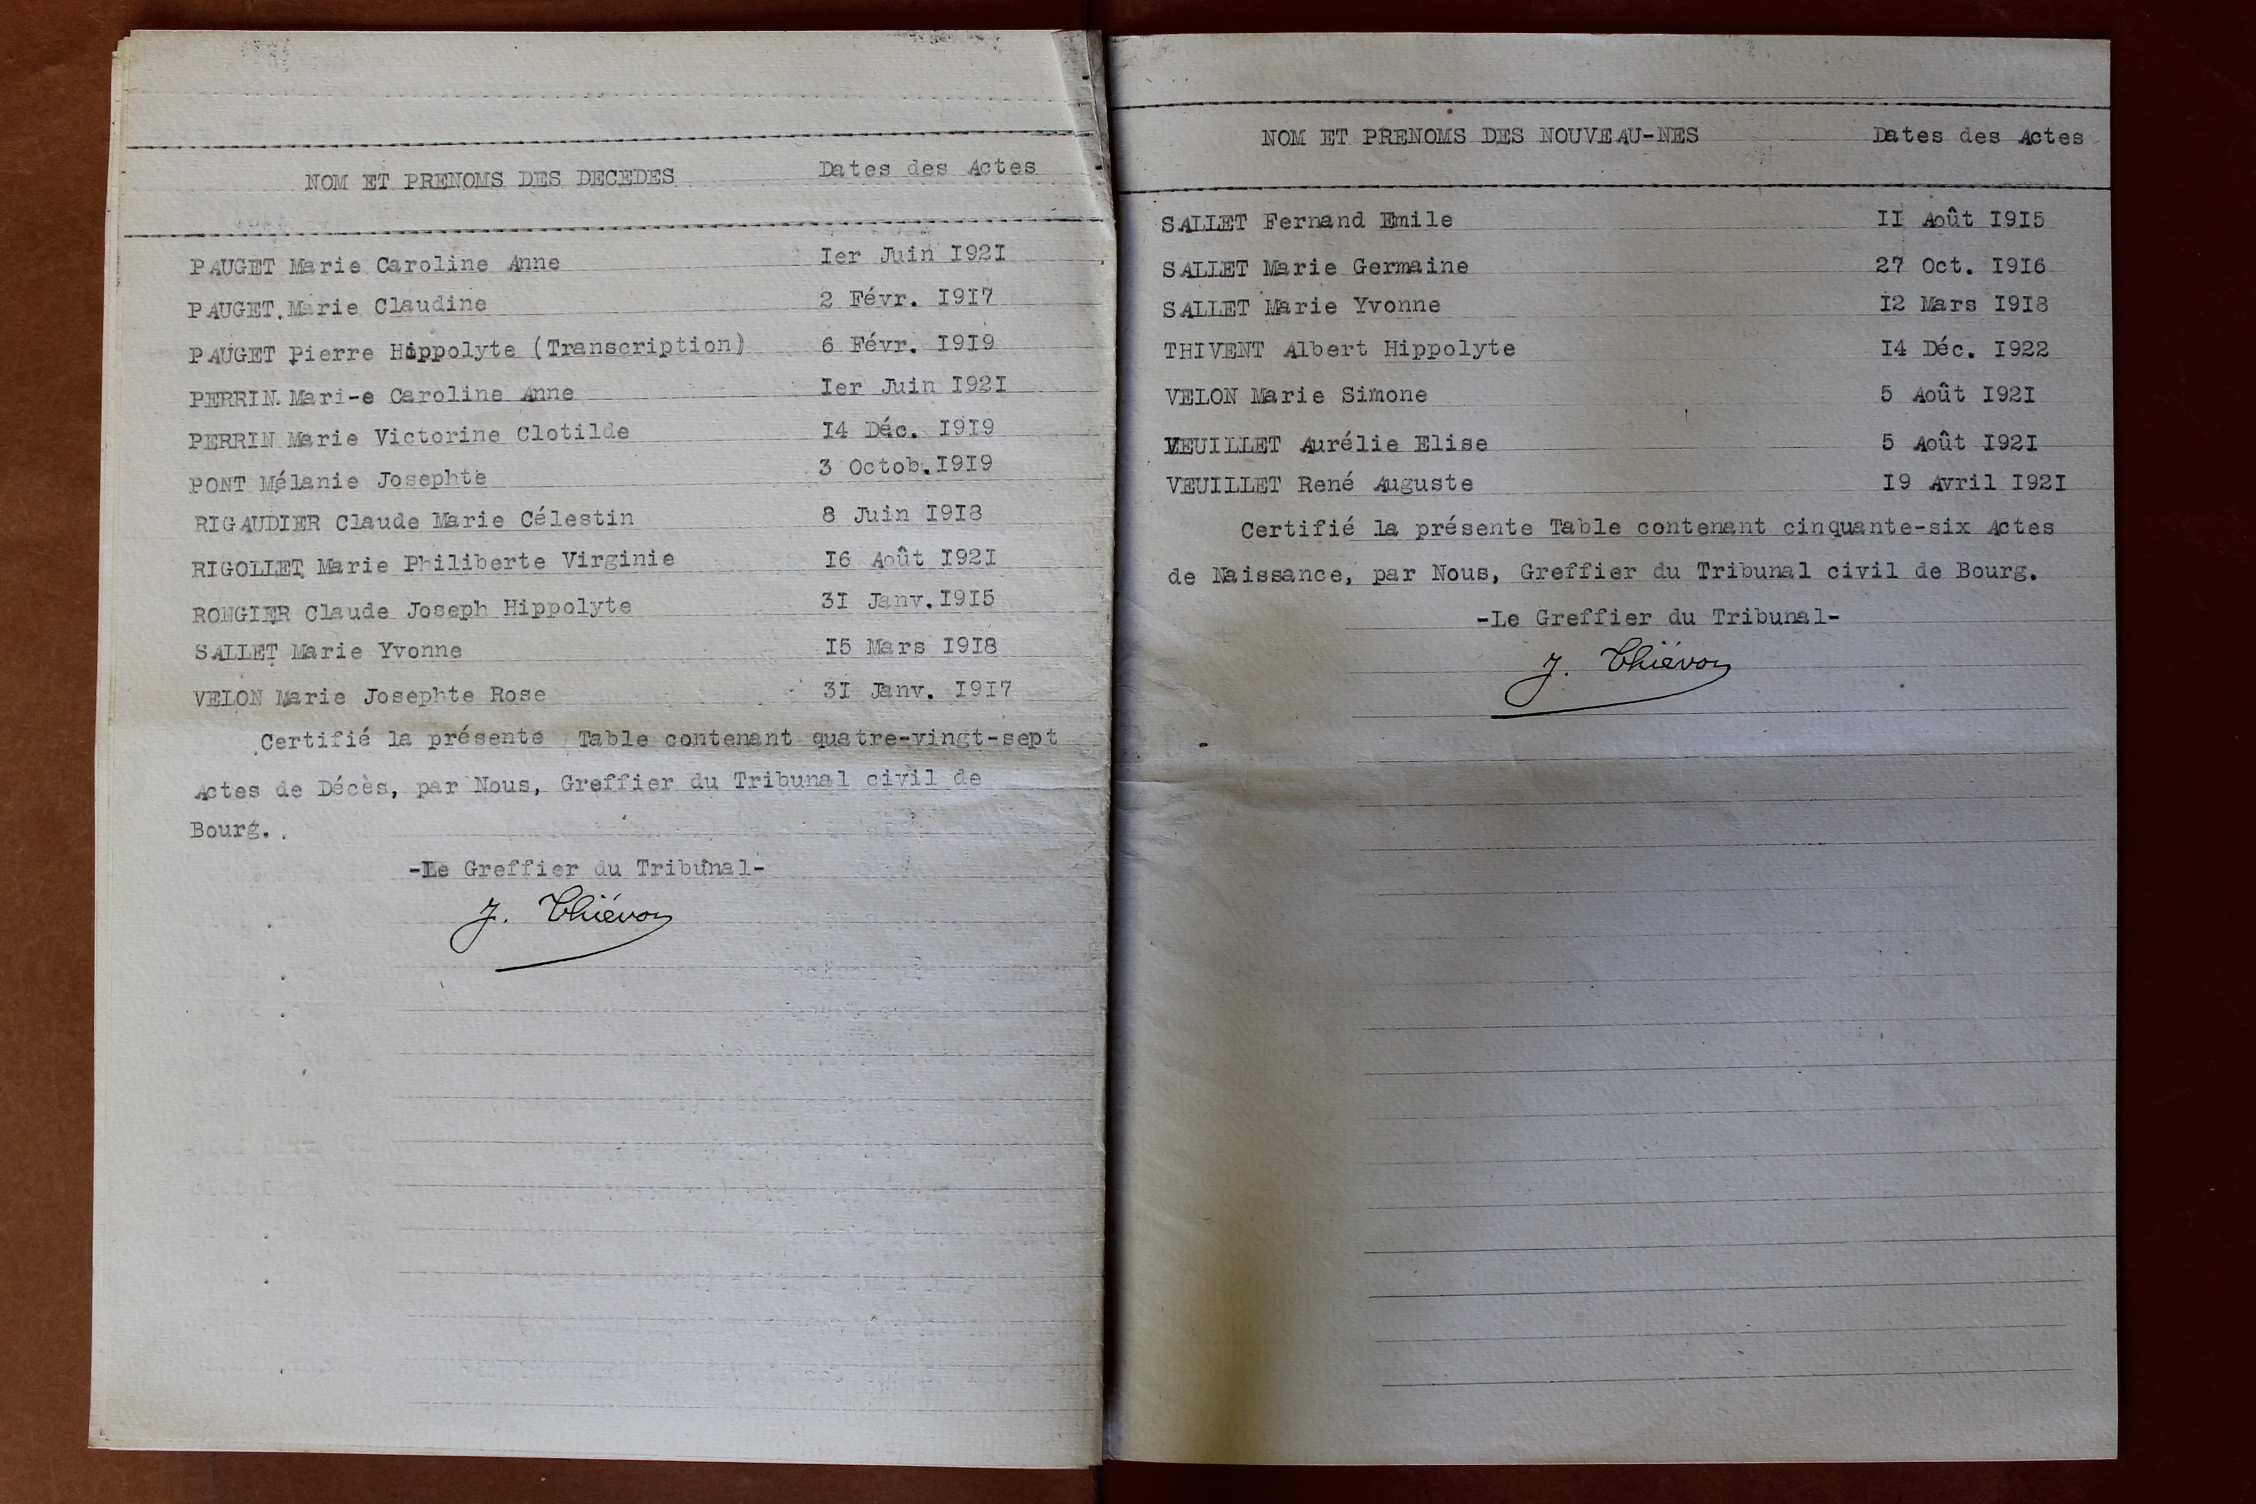 NOM ET PRENOMS DES DECEDES Dates des Actes
PAUGET Marie Caroline Anne Ier Juin I92I
PAUGET Marie Claudine 2 Févr. I9I7
PAUGET Pierre Hippolyte (Transcription) 6 Févr. I9I9
PERRIN Mari-e Caroline Anne Ier Juin I92I
PERRIN Marie Victorine Clotilde I4 Déc. I9I9
PONT Mélanie Josephte 3 Octob. I9I9
RIGAUDIER Claude Marie Célestin 8 Juin I9I8
RIGOLLET Marie Philiberte Virginie I6 Août I92I
RONGIER Claude Joseph Hippolyte 3I Janv. I9I5
SALLET Marie Yvonne I5 Mars I9I8
VELON Marie Josephte Rose 3I Janv. I9I7
Certifié la présente Table contenant quatre-vingt-sept
Actes de Décès, par Nous, Greffier du Tribunal civil de
Bourg.
-Le Greffier du Tribunal-
J. Thiévon
NOM ET PRENOMS DES NOUVEAU-NES Dates des Actes
SALLET Fernand Emile II Août I9I5
SALLET Marie Germaine 27 Oct. I9I6
SALLET Marie Yvonne I2 Mars I9I8
THIVENT Albert Hippolyte I4 Déc. I922
VELON Marie Simone 5 Août I92I
VEUILLET Aurélie Elise 5 Août I92I
VEUILLET René Auguste I9 Avril I92I
Certifié la présente Table contenant cinquante-six Actes
de Naissance, par Nous, Greffier du Tribunal civil de Bourg.
-Le Greffier du Tribunal-
J. Thiévon